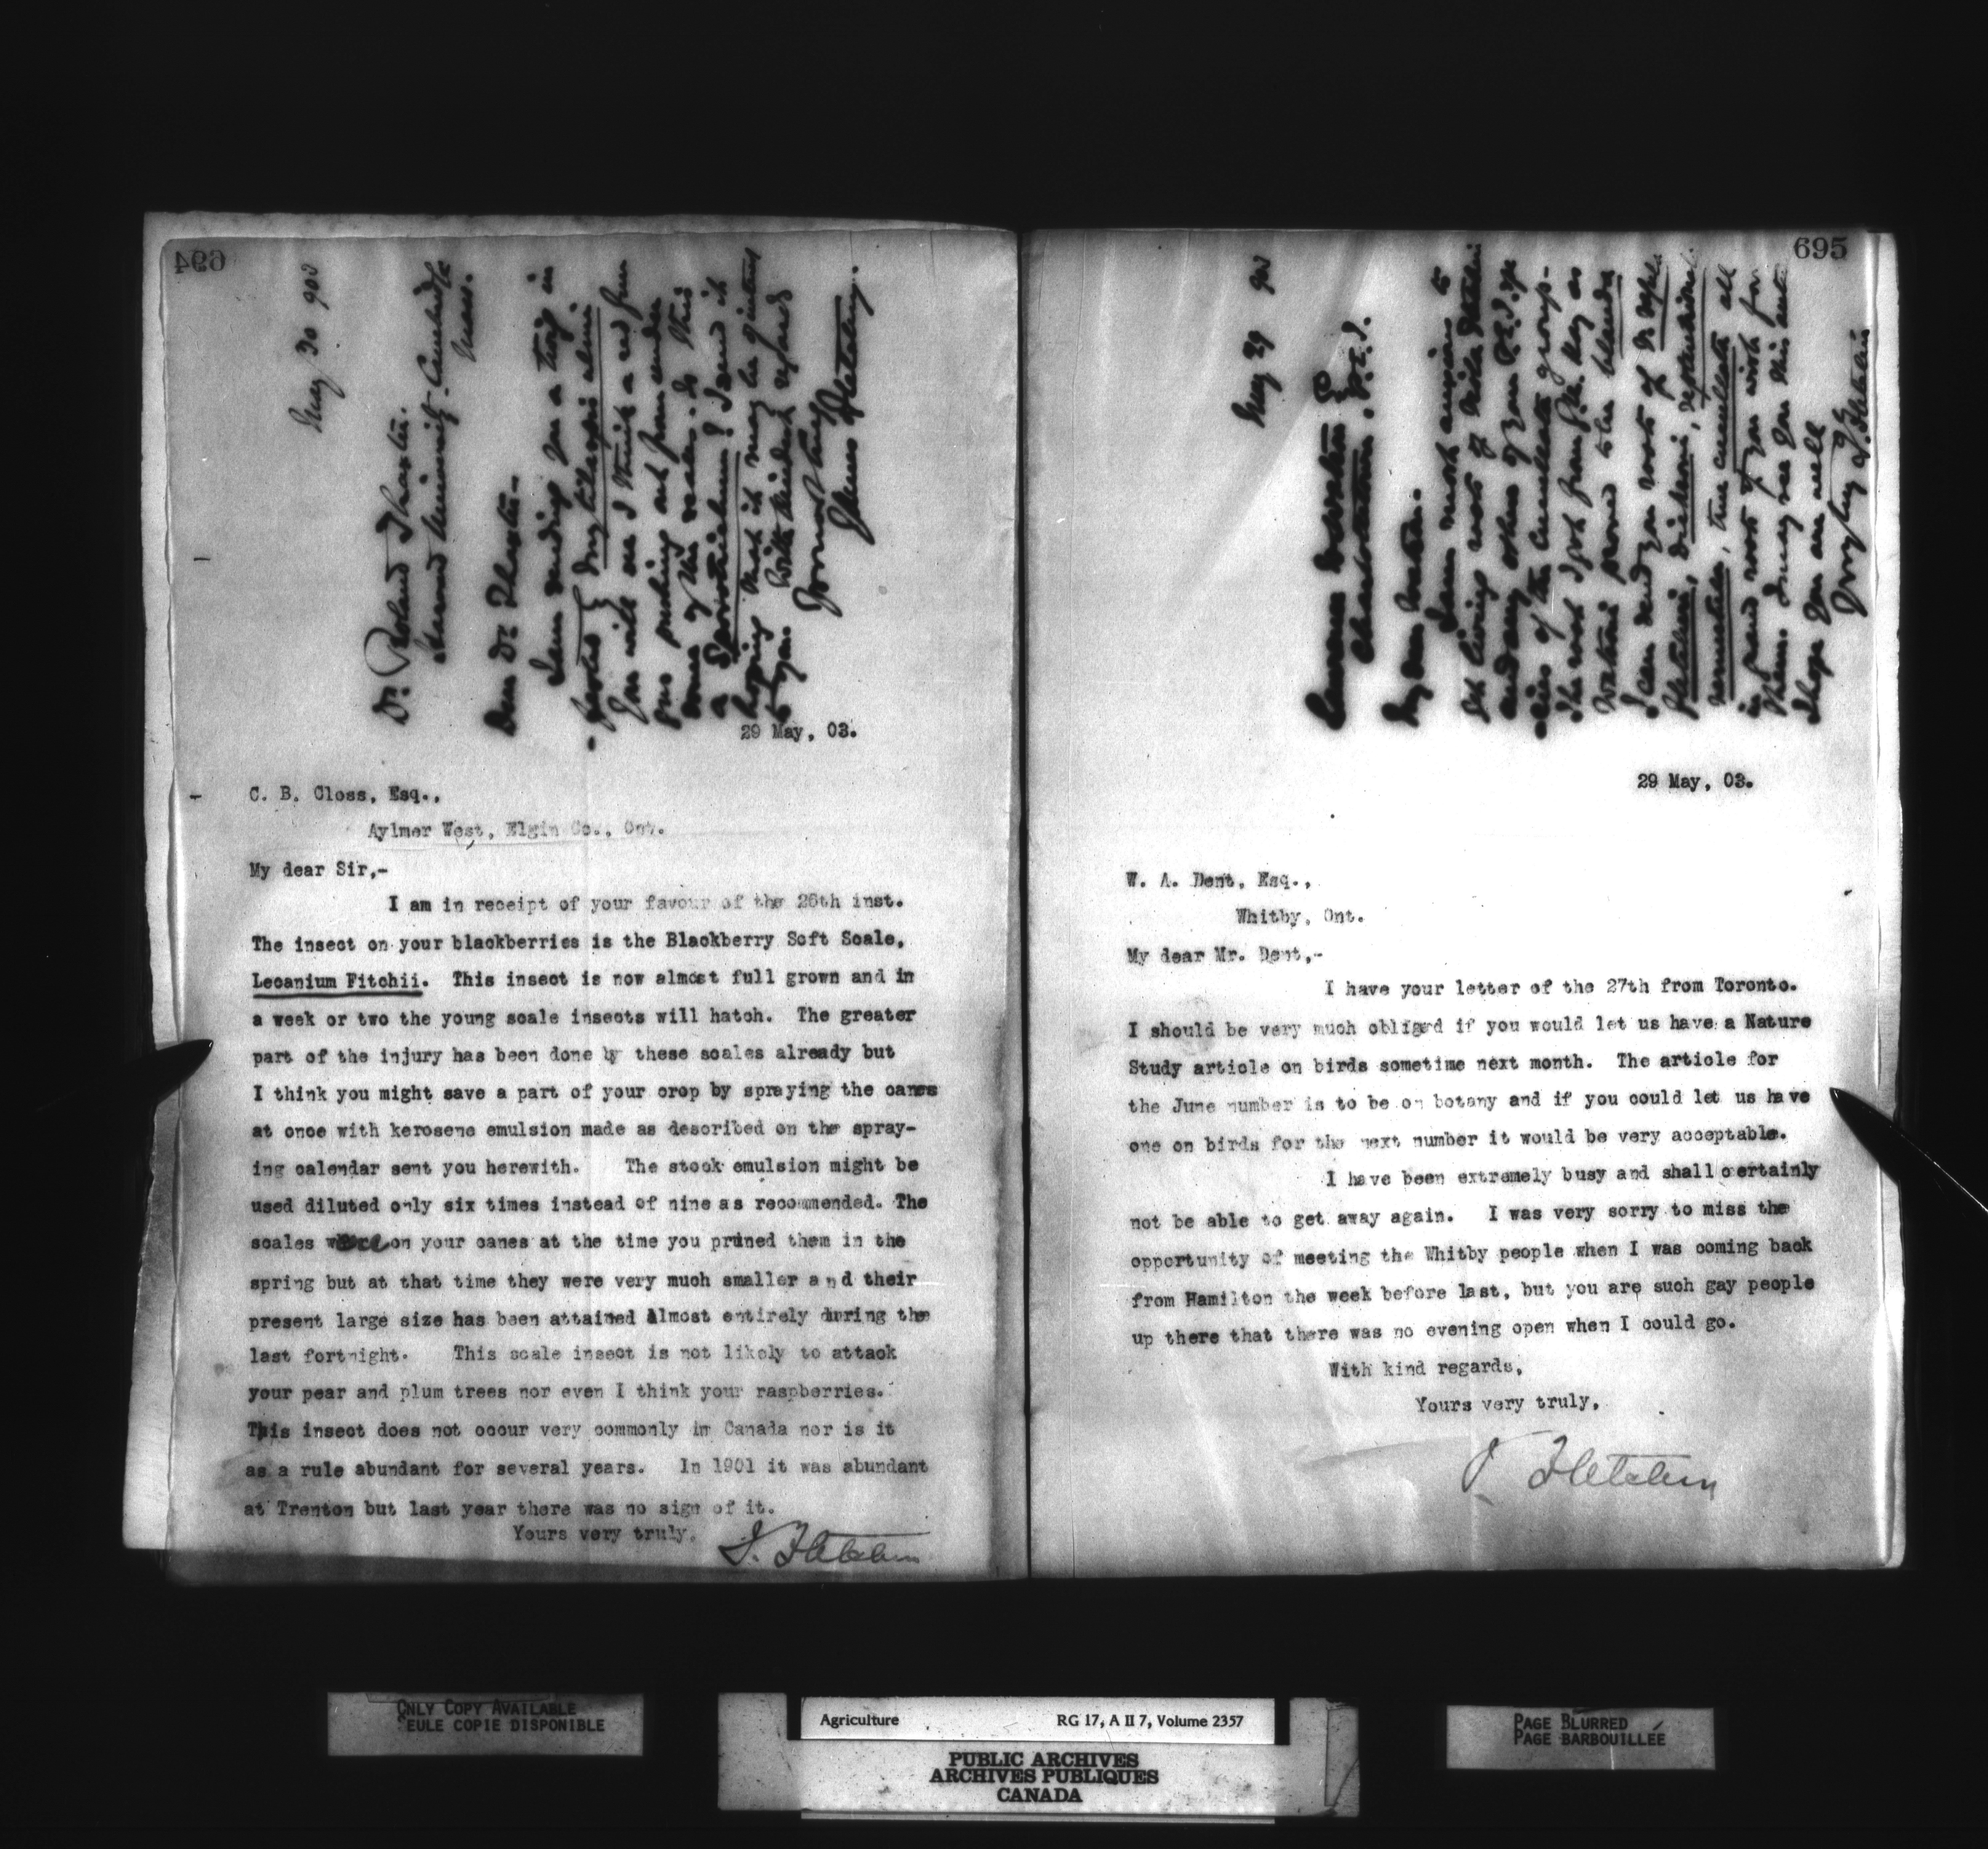 694
May 30 903
Dr. Roland Thaxter.
Harvard University. Cambridge
Mass.
Dear Dr. Thaxter.-
I am sending you a twig in
You will see I think a red
pushing out from under
some of the scales. Is this
a
hoping that it may be of interest
to you. With kindest regards
Yours truly
James Fletcher.
29 May, 03.
C. B. Closs, Esq.,
Aylmer West, Elgin Co., Ont.
My dear Sir,-
I am in receipt of your favour of the 26th inst.
The insect on your blackberries is the Blackberry Soft Scale,
Lecanium Fitchii. This insect is now almost full grown and in
a week or two the young scale insects will hatch. The greater
part of the injury has been done by these scales already but
I think you might save a part of your crop by spraying the canes
at once with kerosene emulsion made as described on the spray-
ing calendar sent you herewith. The stock emulsion might be
used diluted only six times instead of nine as recommended. The
scales were on your canes at the time you pruned them in the
spring but at that time they were very much smaller and their
present large size has been attained almost entirely during the
last fortnight. This scale insect is not likely to attack
your pear and plum trees nor even I think your raspberries.
This insect does not occur very commonly in Canada nor is it
as a rule abundant for several years. In 1901 it was abundant
at Trenton but last year there was no sign of it.
Yours very truly,
J. Fletcher
695
May 29 903
Lawrence Watson Esq
Charlottetown. P.E.I.
My dear Watson.
I am most anxious to
get living roots of Viola
and any others of your P.E.I. 
of the Cucullata group-
The root I got from
Watsoni proved to be blanda
I can send you roots of
Fletcheri, Dicksoni, septentrionalis
, true cucullata all
in pans roots if you wish for
them. I may see you this
I hope you are well
J. Fletcher
29 May, 03.
W. A. Dent, Esq.,
Whitby, Ont.
My dear Mr. Dent,-
I have your letter of the 27th from Toronto.
I should be very much obliged if you would let us have a Nature
Study article on birds sometime next month. The article for
the June number is to be on botany and if you could let us have
one on birds for the next number it would be very acceptable.
I have been extremely busy and shall certainly
not be able to get away again. I was very sorry to miss the
opportunity of meeting the Whitby people when I was coming back
from Hamilton the week before last, but you are such gay people
up there that there was no evening open when I could go.
With kind regards,
Yours very truly,
J. Fletcher
ONLY COPY AVAILABLE
SEULE COPIE DISPONIBLE
Agriculture RG 17, A II 7, Volume 2357
PUBLIC ARCHIVES
ARCHIVES PUBLIQUES
CANADA
PAGE BLURRED
PAGE BARBOUILLÉE